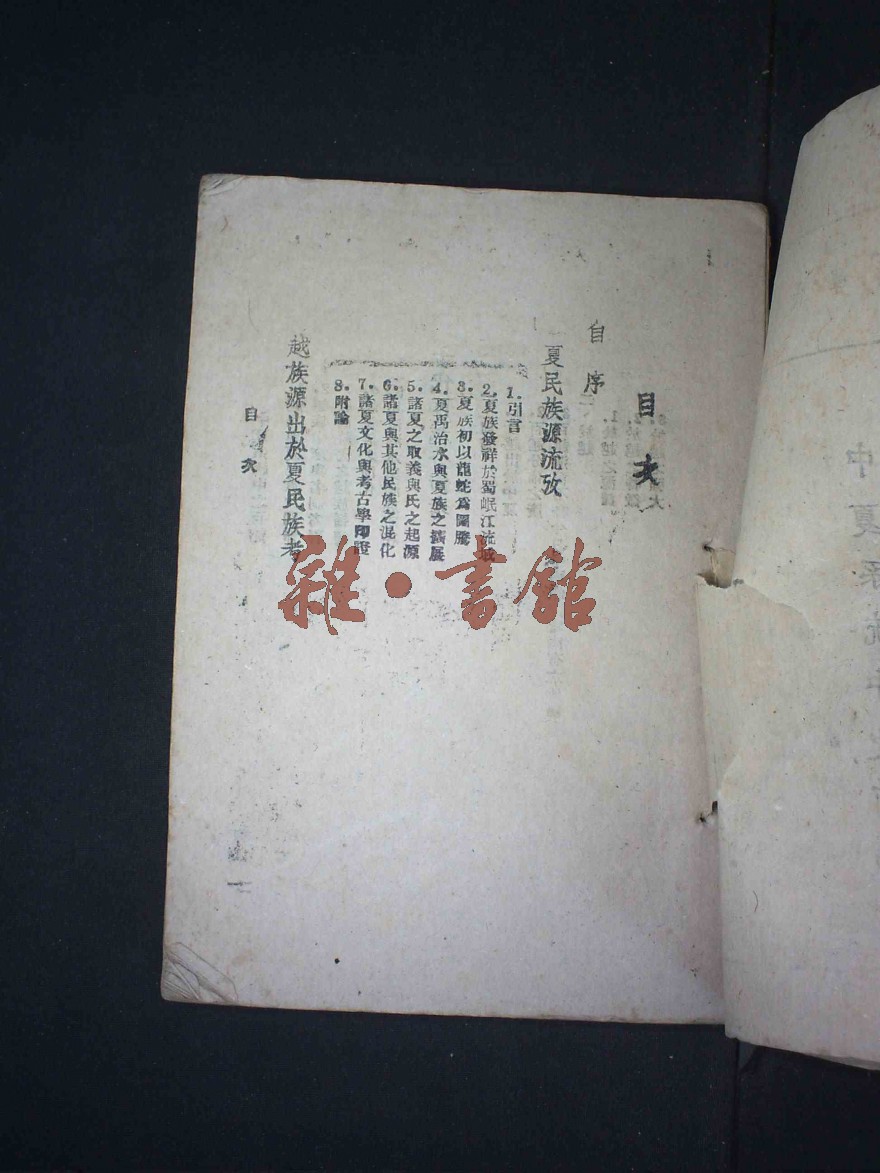 目次
自序
夏民族源流攷
1.引言
2.夏族發祥於蜀岷江流域
3.夏族初以龍蛇爲圖騰
4.夏禹治水與夏族之擴展
5.諸夏之取義與氏之起源
6.諸夏與其他民族之混化
7.諸夏文化與考古學印證
8.附論
越族源出於夏民族考
目次
一
中夏
雜·書館